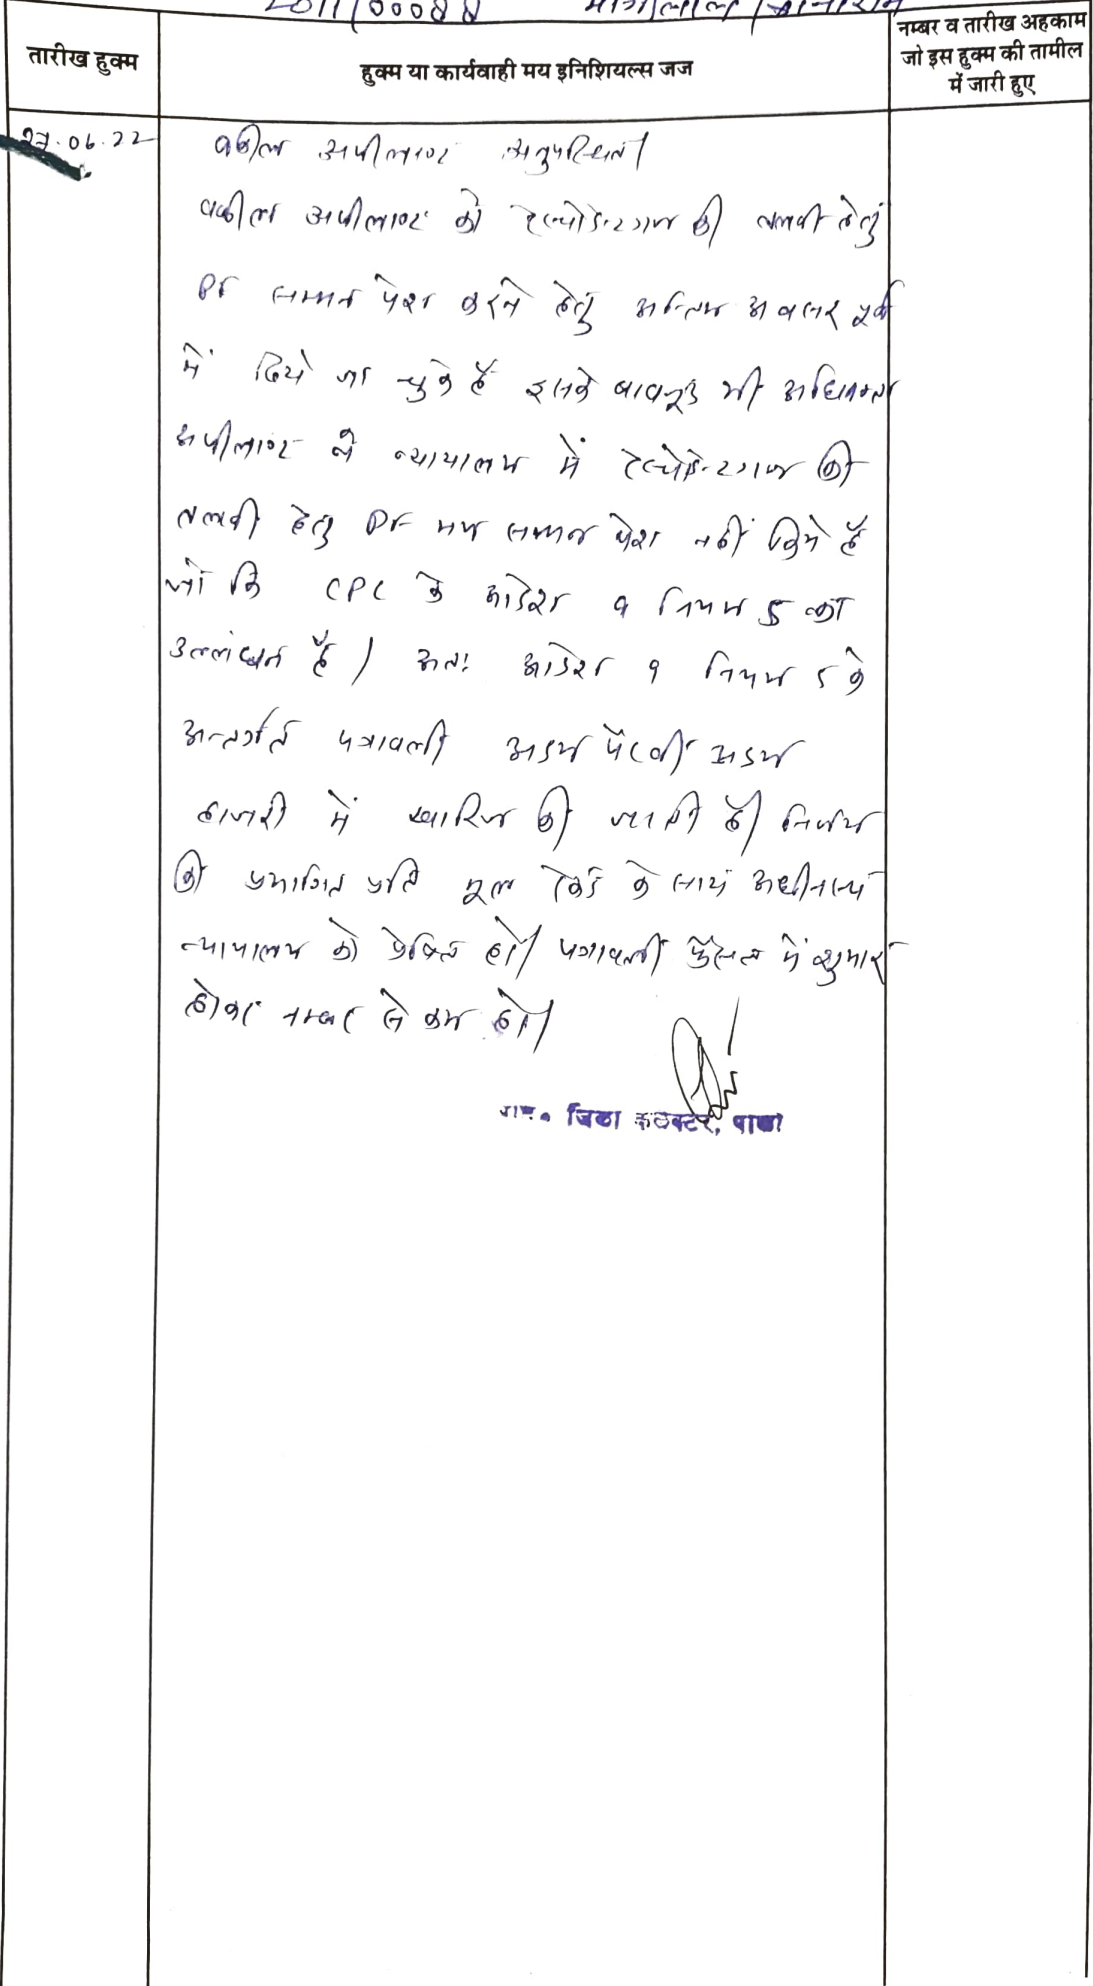 2011/00088 मांगीलाल /
तारीख हुक्म
हुक्म या कार्यवाही मय इनिशियल्स जज
नम्बर व तारीख अहकाम
जो इस हुक्म की तामील
में जारी हुए
27.06.22
वकील अपीलाण्ट अनुपस्थित।
वकील अपीलाण्ट को रेस्पोडेन्टगण की तलबी हेतु
PF सम्मन पेश करने हेतु अन्तिम अवसर पूर्व
में दिये जा चुके हैं इसके बावजूद भी अधिवक्ता
अपीलाण्ट ने न्यायालय में रेस्पोडेन्टगण की
तलबी हेतु PF मय सम्मन पेश नहीं किये हैं
जो कि CPC के आदेश 9 नियम 5 का
उल्लंघन है। अतः आदेश 9 नियम 5 के
अन्तर्गत पत्रावली अदम पैरवी अदम
हाजरी में खारिज की जाती है। निर्णय
की प्रमाणित प्रति मूल रेकर्ड के साथ अधीनस्थ
न्यायालय को प्रेषित हो। पत्रावली फैसल में शुमार
होकर नम्बर से कम हो।
जिला कलक्टर, पाली